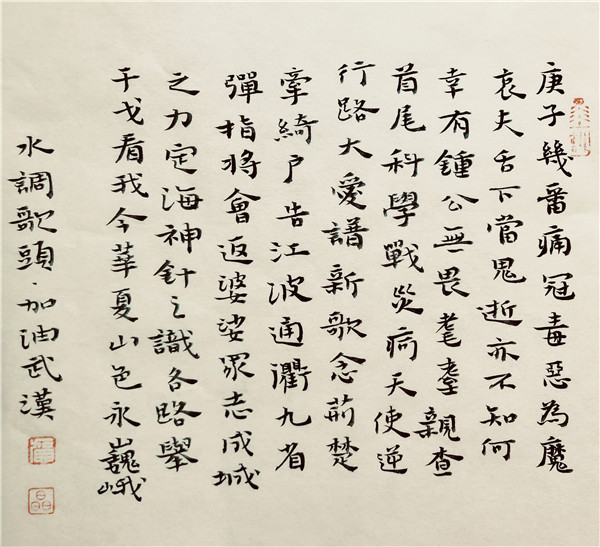 庚子幾番痛冠毒惡為魔
哀夫舌下當鬼逝亦不知何
幸有鍾公無畏耄耋親查
首尾科學戰災痾天使逆
行路大愛譜新歌念荊楚
牽綺戶告江波通衢九省
彈指將會返婆娑眾志成城
之力定海神針之識各路舉
干戈看我今華夏山色永巍峨
水調歌頭·加油武漢
晶